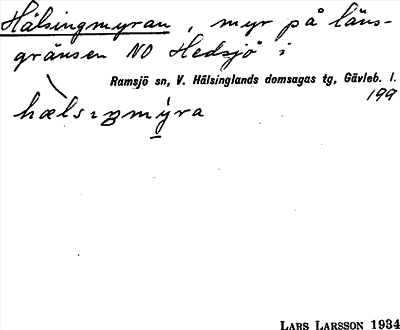 Hälsingmyran, myr på läns-
gränsen NO Hedsjö i
Ramsjö sn, V. Hälsinglands domsagas tg, Gävleb. l.
199
hælsıŋmýra
LARS LARSSON 1934